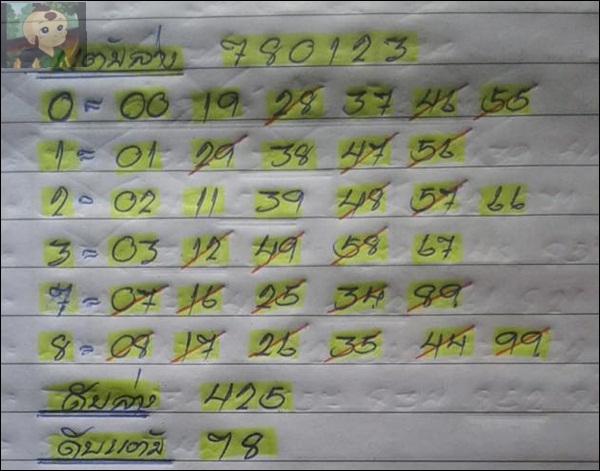 แต้มล่าง 780123
0 = 00 19 28 37 46 55
1 = 01 29 38 47 56
2 - 02 11 39 48 57 66
3 = 03 12 49 58 67
7 = 07 16 25 34 89
8 = 08 17 26 35 44 99
ดับล่าง 425
ดับแต้ม 78